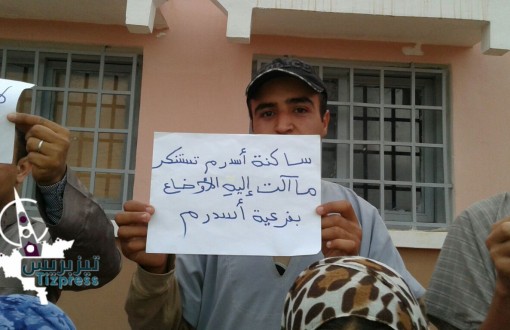 ساكنة أسدرم تستنكر
ما آلت إليه الأوضاع
بفرعية أسدرم
تيزبريس
Tizpress